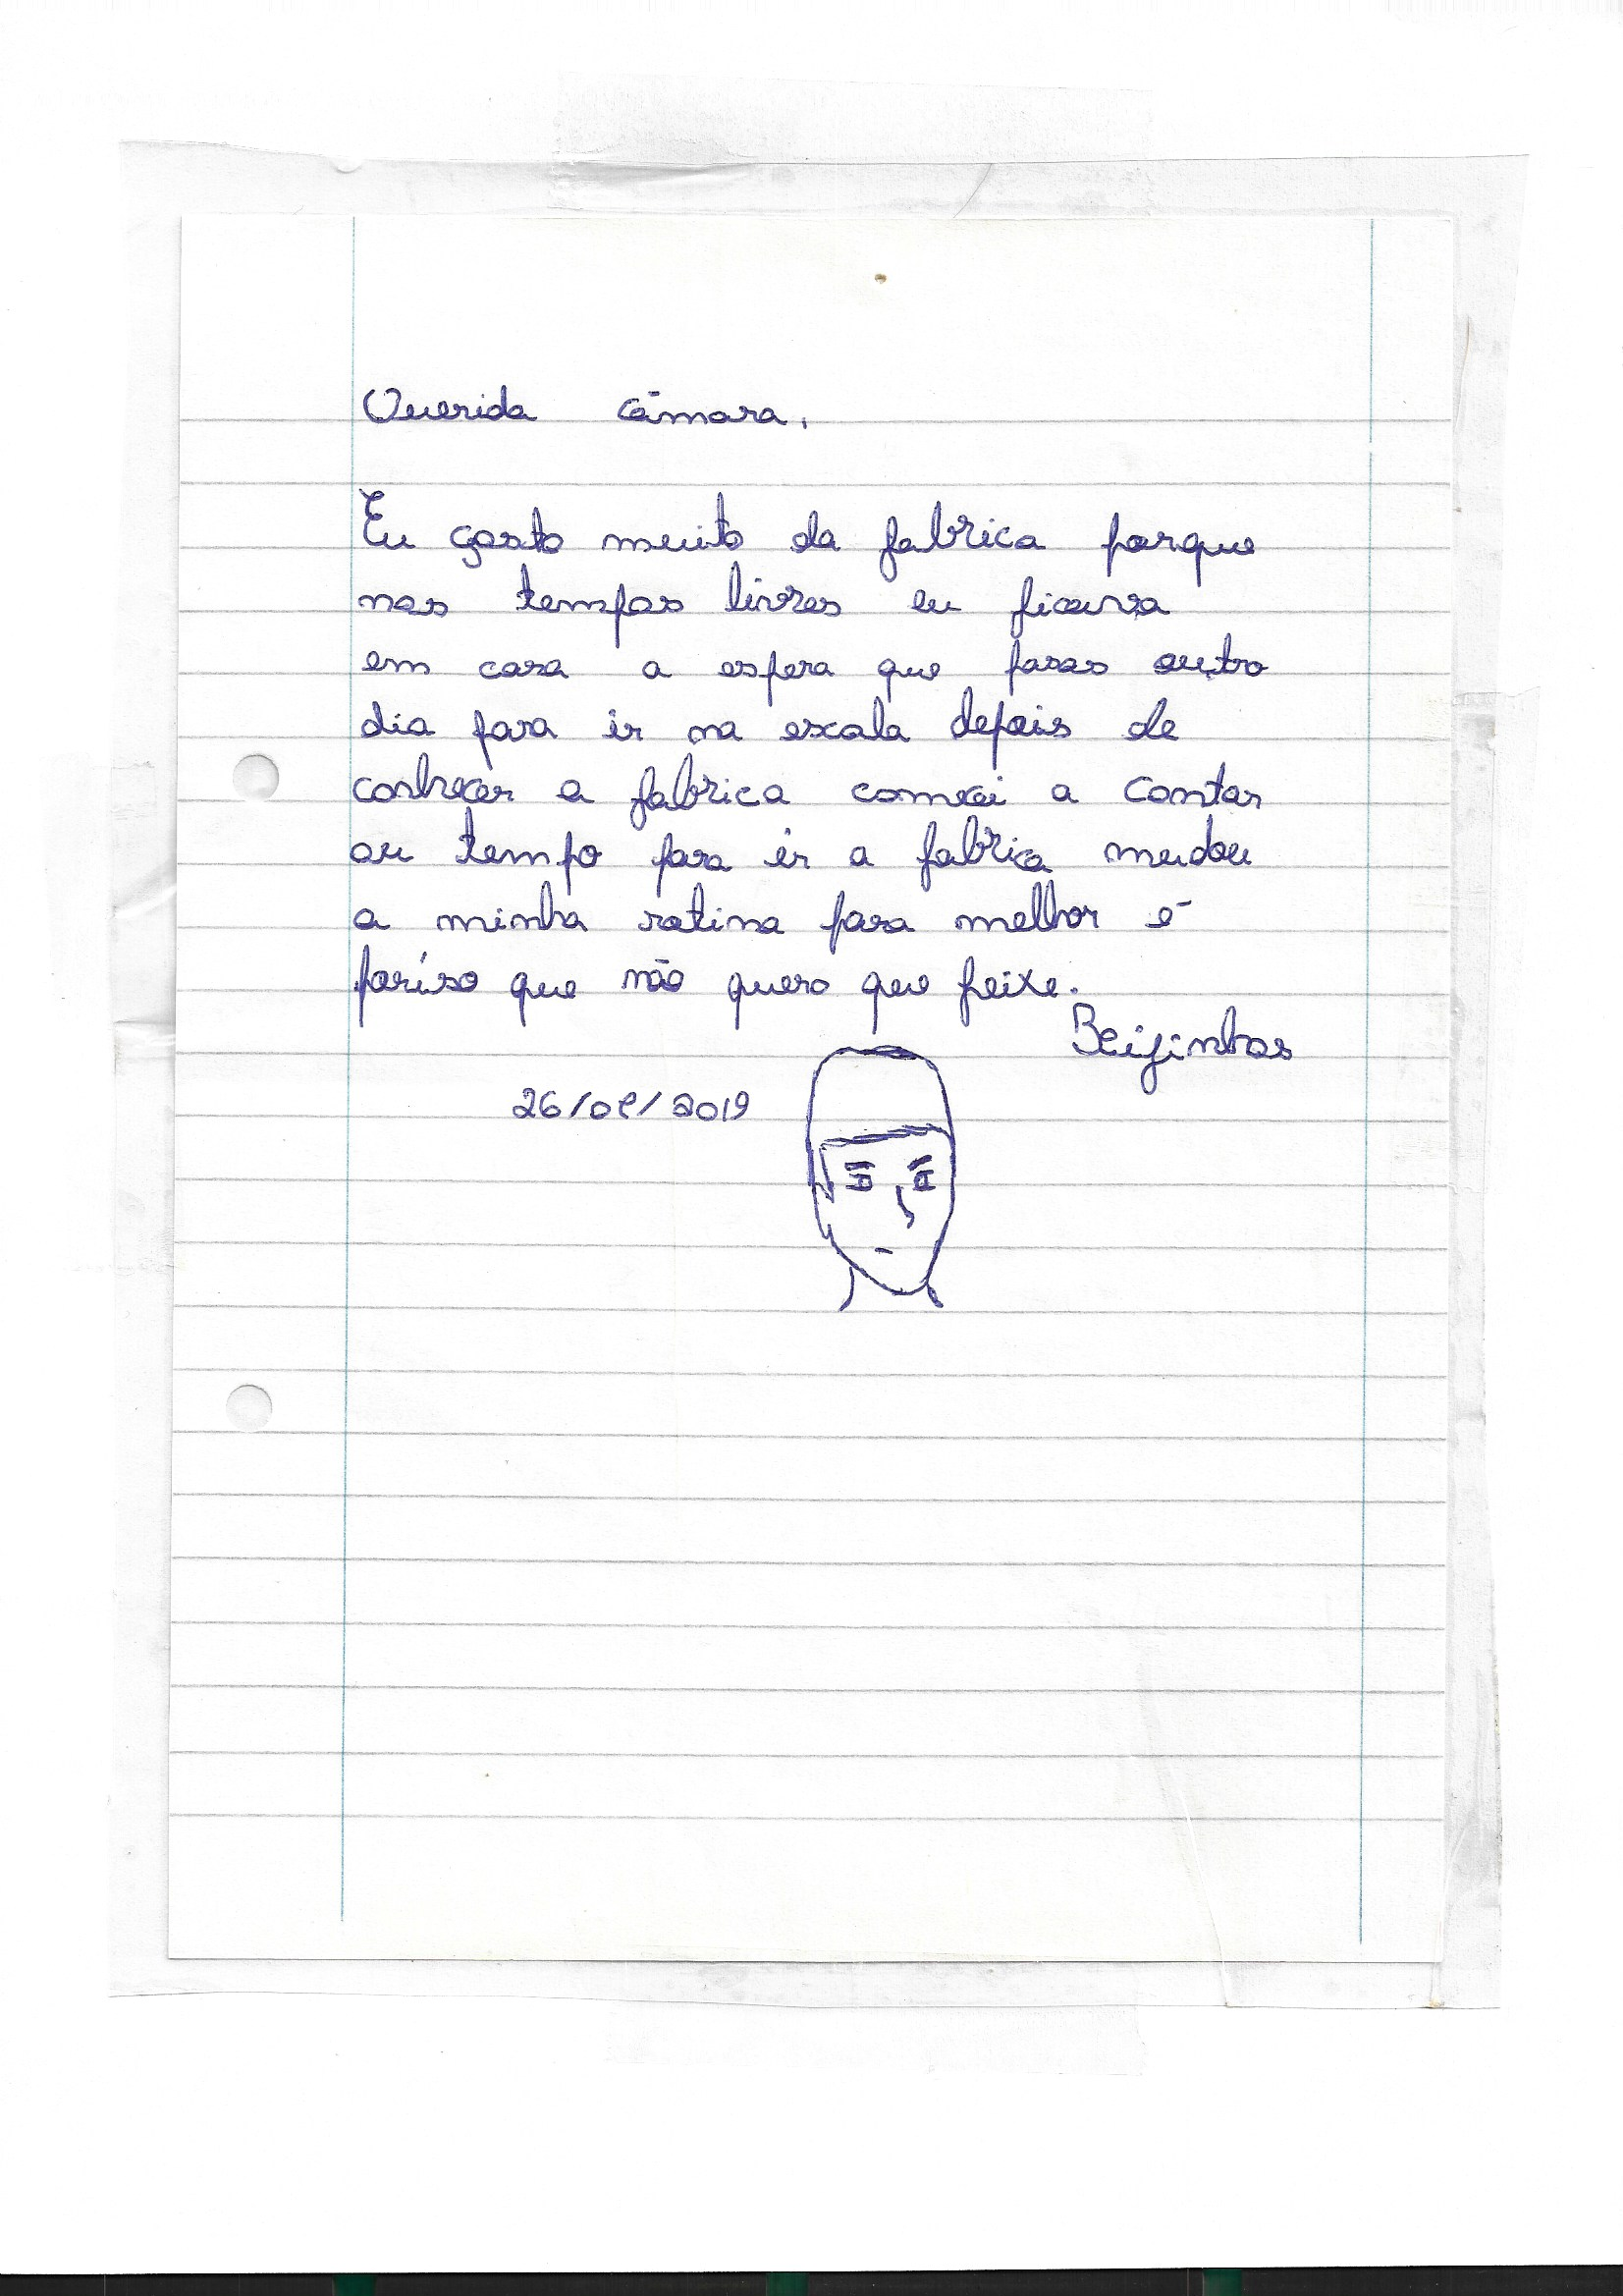 Querida câmara,
Eu gosto muito da fabrica porque
nos tempos livres eu ficava
em casa a espera que pasas outro
dia para ir na escola depois de
conhecer a fabrica comecei a contar
ou tempo para ir a fabrica mudou
a minha rotina para melhor é
poríso que não quero que feixe.
Beijinhos
26/09/2019